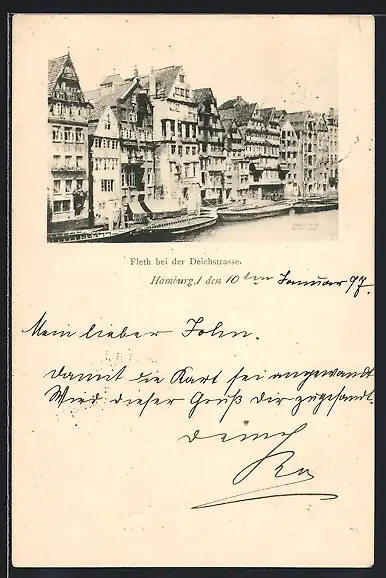 Fleth bei der Deichstrasse.
Hamburg, den 10ten Januar 97.
Mein lieber John.
Damit die Kart sei angewandt
Wird dieser Gruß Dir zugesandt.